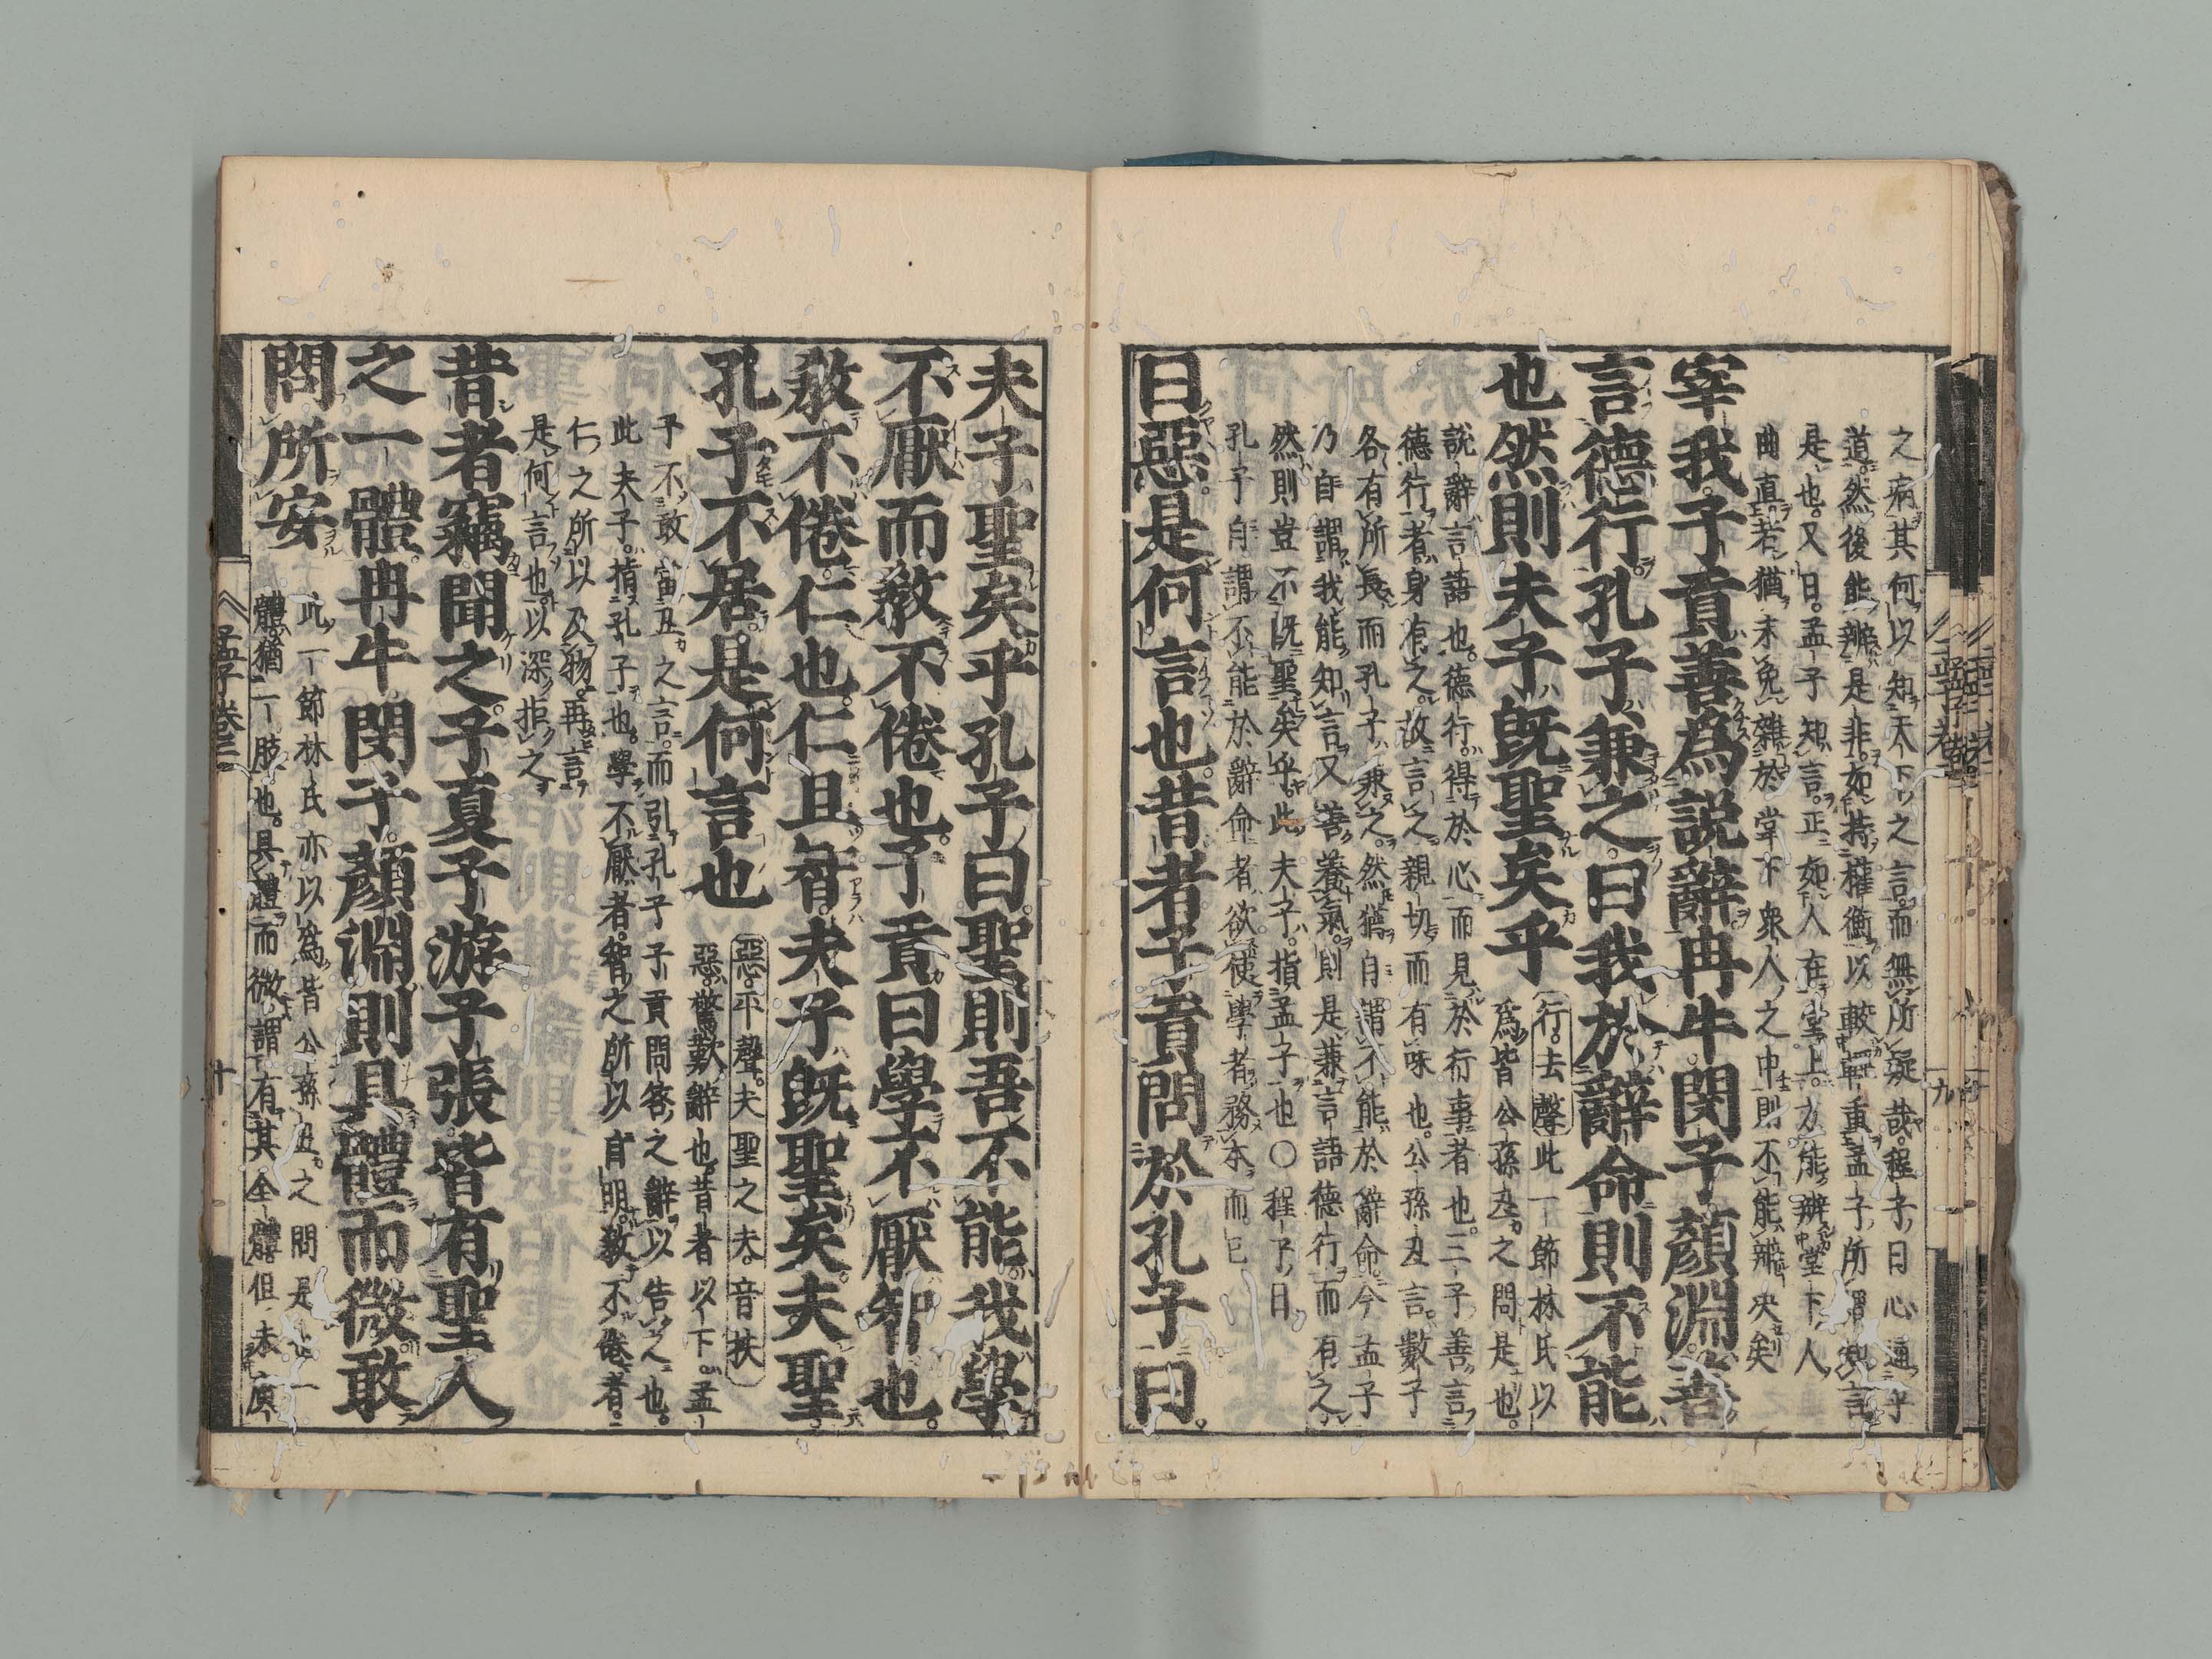 之病其何以知天下之言而無所疑哉程子曰心通乎
道然後能辨是非如持權衡以較輕重孟子所謂知言
是也又曰孟子知言正如人在堂上方能辨堂下人
曲直若猶未免雜於堂下衆人之中則不能辨决矣
宰我子貢善為説辭冉牛閔子顔淵善
言德行孔子兼之曰我於辭命則不能
也然則夫子既聖矣乎
行去聲此一節林氏以
爲皆公孫丑之問是也
説辭言語也德行得於心而見於行事者也三子善言
德行者身有之故言之親切而有味也公孫丑言數子
各有所長而孔子兼之然猶自謂不能於辭命今孟子
乃自謂我能知言又善養氣則是兼言語德行而有之
然則豈不既聖矣乎此夫子指孟子也○程子曰
孔子自謂不能於辭命者欲使學者務本而已
曰惡是何言也昔者子貢問於孔子曰
夫子聖矣乎孔子曰聖則吾不能我學
不厭而教不倦也子貢曰學不厭智也
教不倦仁也仁且智夫子既聖矣夫聖
孔子不居是何言也
惡平聲夫聖之夫音扶
惡驚歎辭也昔者以下孟
子不敢當丑之言而引孔子子貢問答之辭以告之也
此夫子指孔子也學不厭者智之所以自明教不倦者
仁之所以及物再言
是何言也以深拒之
昔者竊聞之子夏子游子張皆有聖人
之一體冉牛閔子顔淵則具體而微敢
問所安
此一節林氏亦以爲皆公孫丑之問是也一
體猶一肢也具體而微謂有其全體但未廣
孟子卷三
十
九